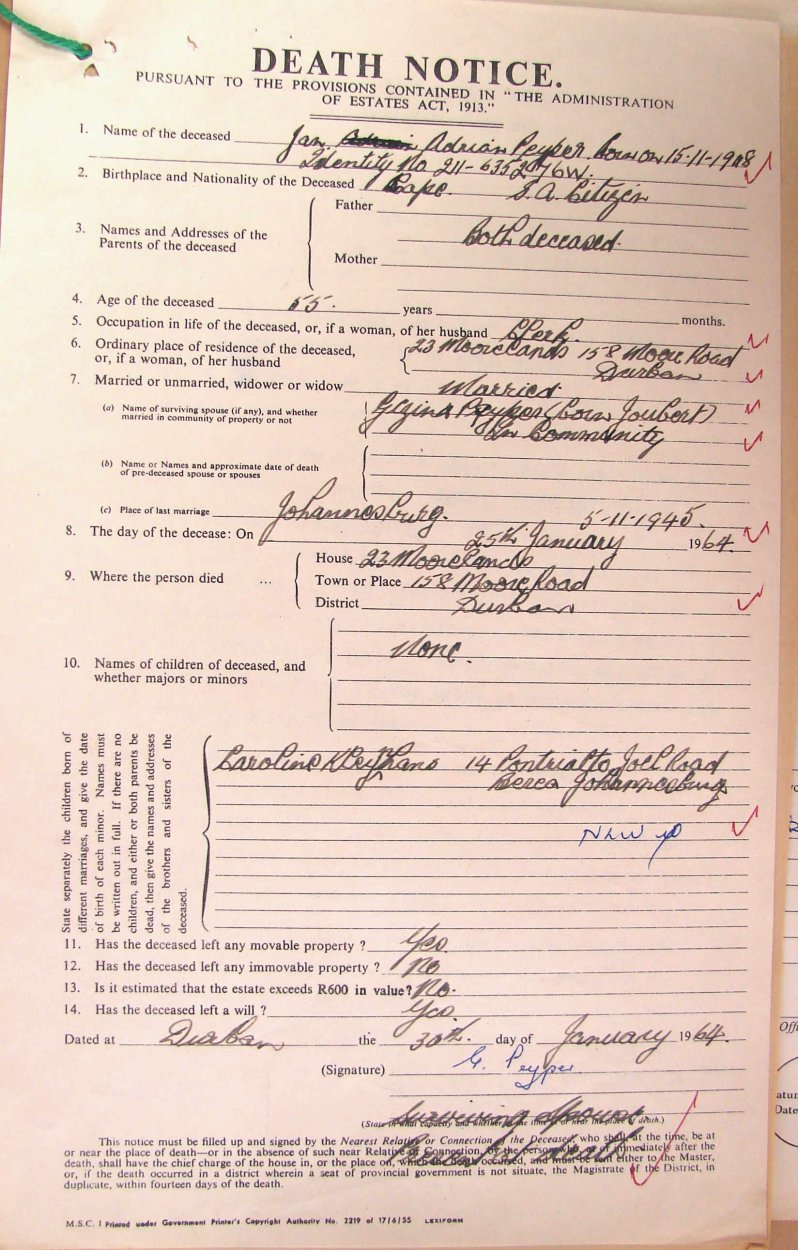 DEATH NOTICE.
PURSUANT TO THE PROVISIONS CONTAINED IN "THE ADMINISTRATION
OF ESTATES ACT, 1913."
1. Name of the deceased Jan Adrian Peyper born on 15-11-1908
Identity No 211-6352076W.
2. Birthplace and Nationality of the Deceased Cape. S.A. Citizen
3. Names and Addresses of the Parents of the deceased
Father
Both deceased.
Mother
4. Age of the deceased 55. years months.
5. Occupation in life of the deceased, or, if a woman, of her husband Clerk.
6. Ordinary place of residence of the deceased, 23 Moorelands 158 Moore Road
or, if a woman, of her husband Durban
7. Married or unmarried, widower or widow Married.
(a) Name of surviving spouse (if any), and whether Gezina Peyper (born Joubert)
married in community of property or not In Community
(b) Name or Names and approximate date of death
of pre-deceased spouse or spouses
(c) Place of last marriage Johannesburg. 5-11-1945.
8. The day of the decease: On 25th January 1964.
House 23 Moorelands
9. Where the person died ... Town or Place 158 Moore Road
District Durban
None.
10. Names of children of deceased, and
whether majors or minors
State separately the children born of
different marriages, and give the date
of birth of each minor. Names must
be written out in full. If there are no
children, and either or both parents be
dead, then give the names and addresses
of the brothers and sisters of the
deceased.
Caroline Kleyhans 14 Pontrialto Joel Road
Berea Johannesburg
11. Has the deceased left any movable property? Yes
12. Has the deceased left any immovable property? No
13. Is it estimated that the estate exceeds R600 in value? No.
14. Has the deceased left a will? Yes
Dated at Durban the 30th. day of January 1964.
(Signature) G. Peyper.
Surviving Spouse
(State in what capacity and whether at the time at or near the place of death.)
This notice must be filled up and signed by the Nearest Relative or Connection of the Deceased, who shall, at the time, be at
or near the place of death—or in the absence of such near Relative or Connection, by the person who, immediately after the
death, shall have the chief charge of the house in, or the place on, which the death occurred, and must be sent either to the Master,
or, if the death occurred in a district wherein a seat of provincial government is not situate, the Magistrate of the District, in
duplicate, within fourteen days of the death.
M.S.C. 1 Printed under Government Printer's Copyright Authority No. 2219 of 17/6/55 LEXIFORM